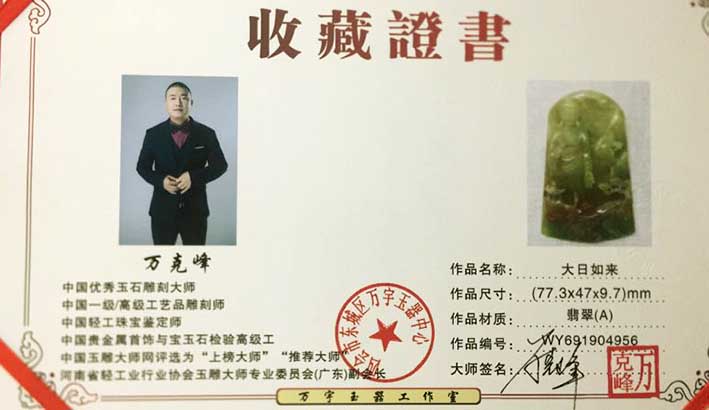 收藏證書
万克峰
中国优秀玉石雕刻大师
中国一级/高级工艺品雕刻师
中国轻工珠宝鉴定师
中国贵金属首饰与宝玉石检验高级工
中国玉雕大师网评选为“上榜大师”“推荐大师”
河南省轻工业行业协会玉雕大师专业委员会(广东)副会长
作品名称: 大日如来
作品尺寸: (77.3x47x9.7)mm
作品材质: 翡翠(A)
作品编号: WY691904956
大师签名:
万克峰
会市东城区万宇玉器中心
万宇玉器工作室